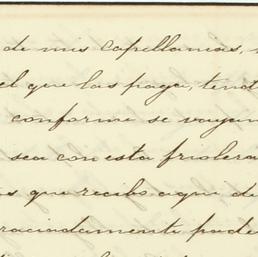 de mis capellanias,
el que las paga, tend
conforme se vayan
sea con esta friolera
que recibo aqui de
raciadamente pade